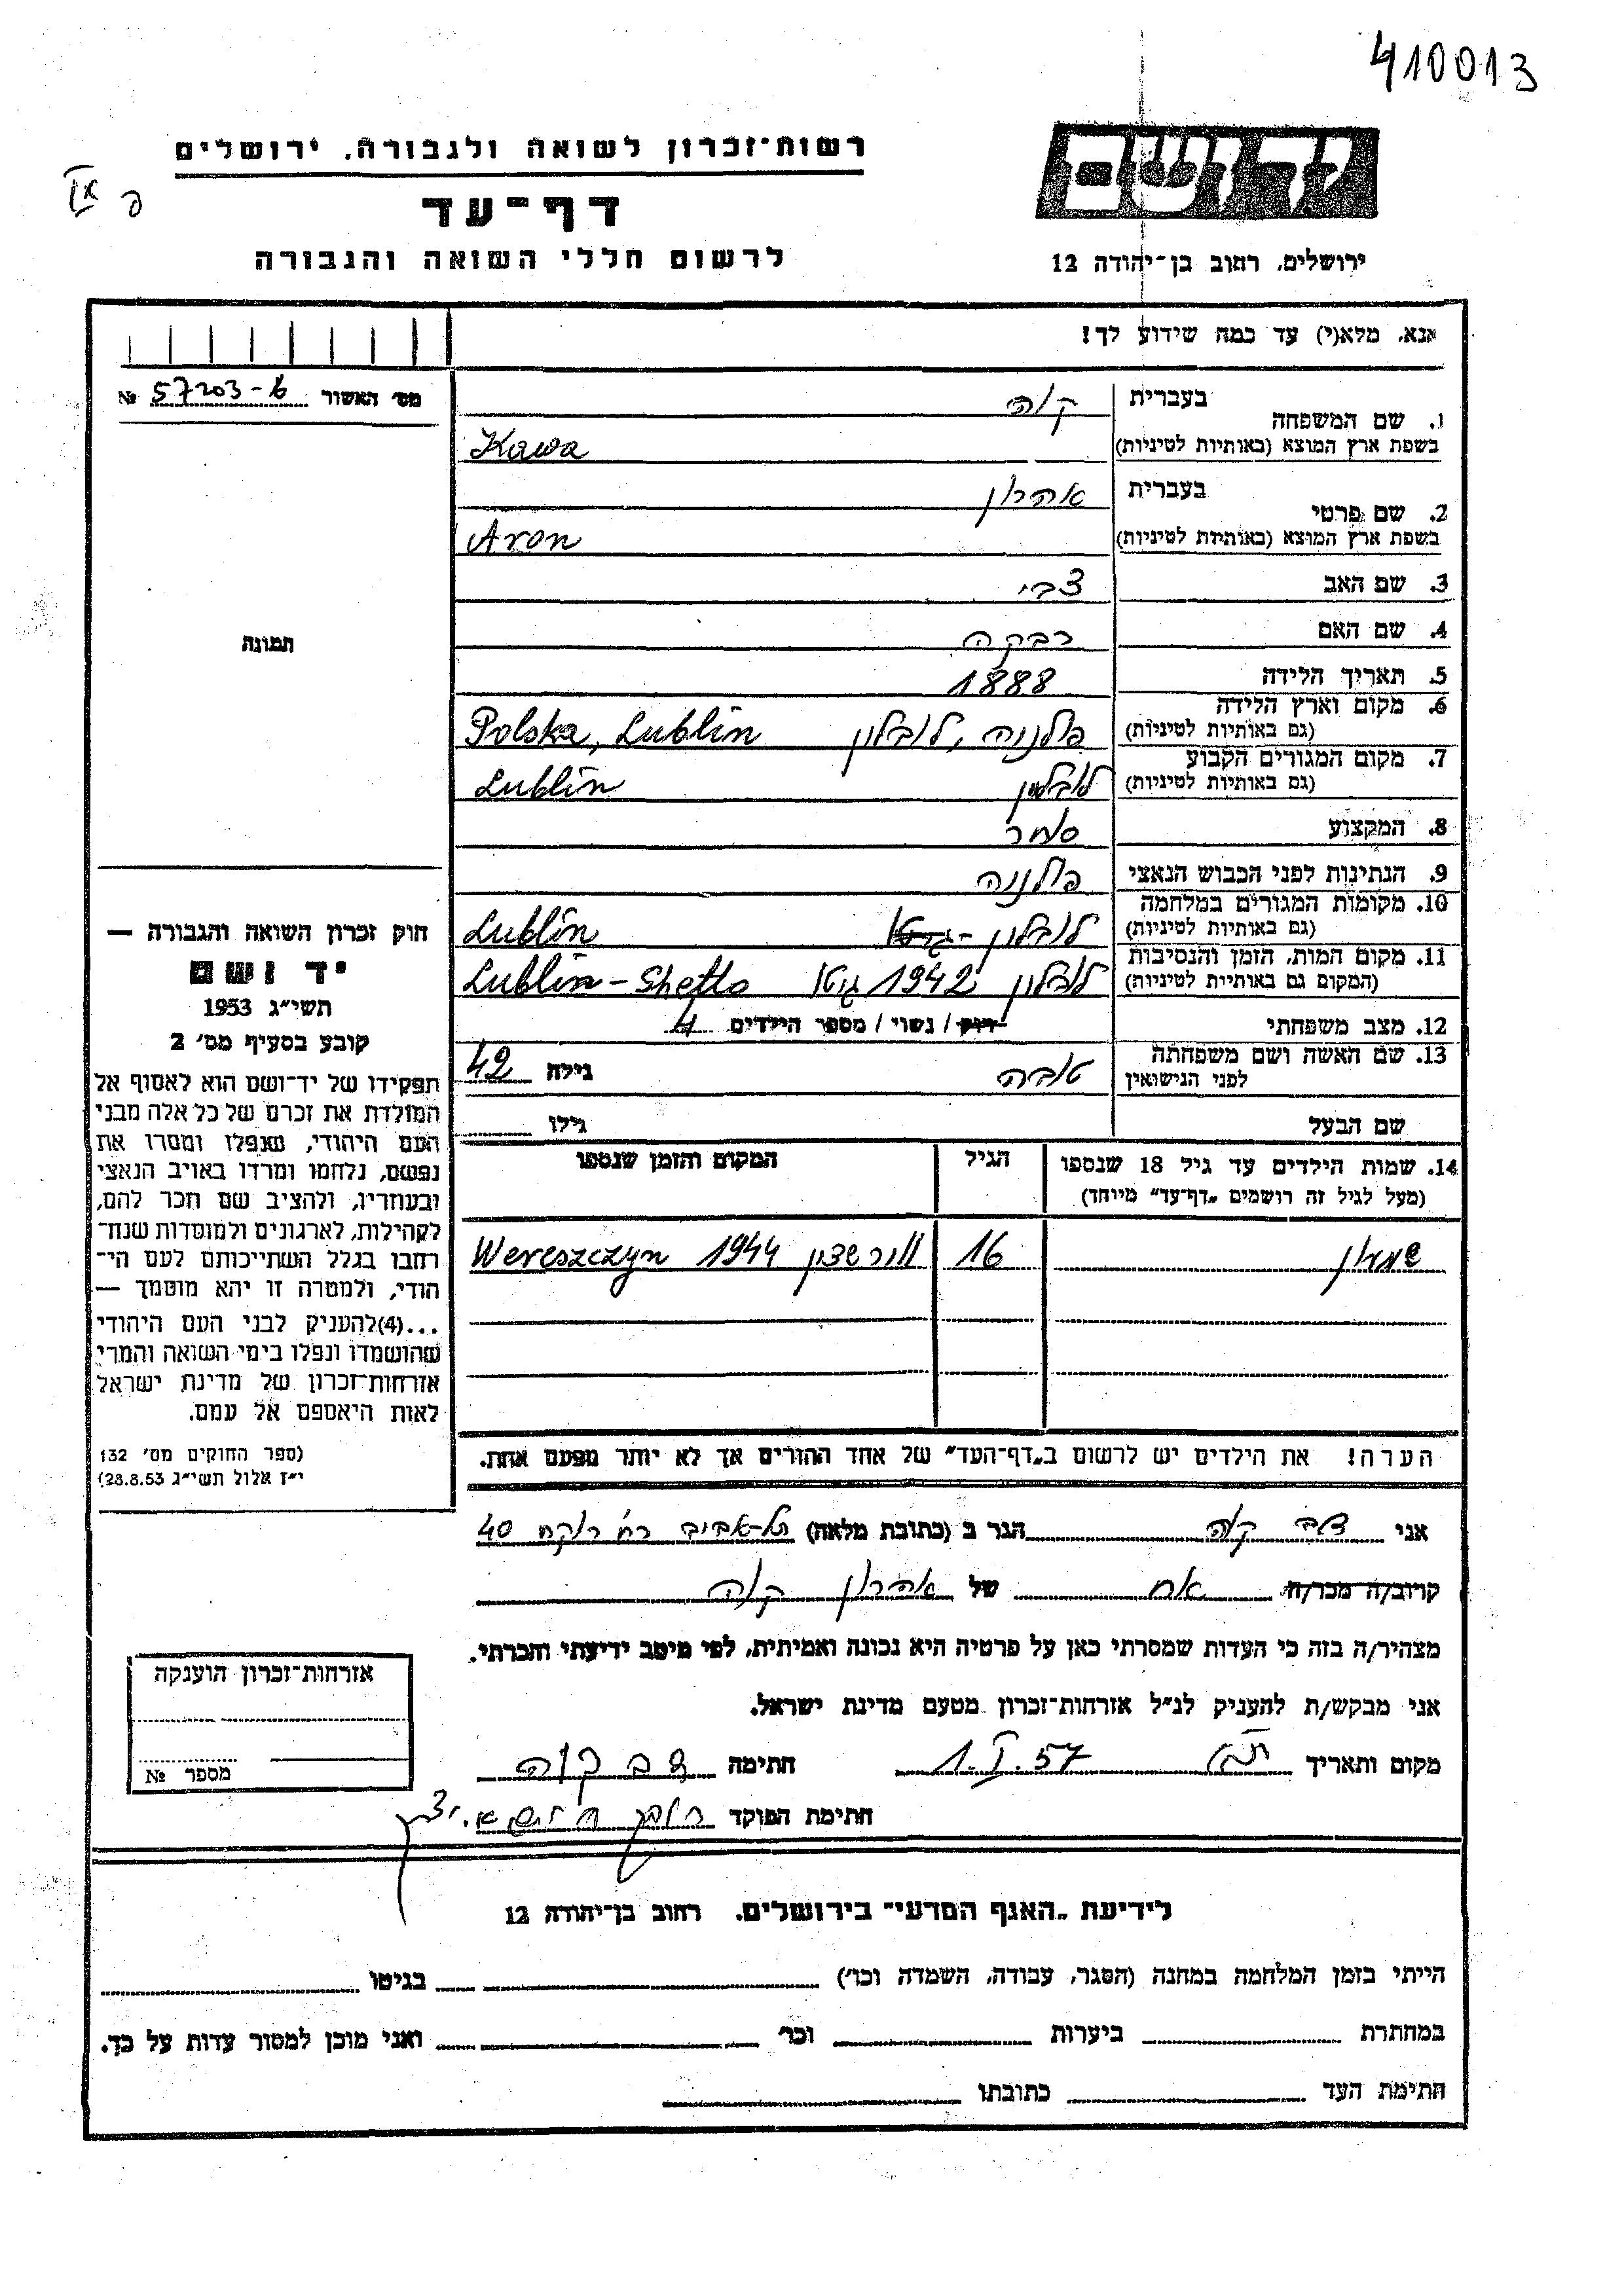 410013
רשות־זכרון לשואה ולגבורה. ירושלים
דף־עד
לרשום חללי השואה והגבורה
ידושם
ירושלים, רחוב בן־יהודה 12
אנא, מלא(י) עד כמה שידוע לך!
מס' האשור 57203-6 №
1. שם המשפחה בעברית קוה
בשפת ארץ המוצא (באותיות לטיניות) Kawa
2. שם פרטי בעברית אהרון
בשפת ארץ המוצא (באותיות לטיניות) Aron
3. שם האב צבי
4. שם האם רבקה
5. תאריך הלידה 1888
6. מקום וארץ הלידה
(גם באותיות לטיניות) פולניה, לובלין Polska, Lublin
7. מקום המגורים הקבוע
(גם באותיות לטיניות) לובלין Lublin
8. המקצוע סוחר
9. הנתינות לפני הכבוש הנאצי פולניה
10. מקומות המגורים במלחמה
(גם באותיות לטיניות) לובלין - גיטו Lublin
11. מקום המות, הזמן והנסיבות
(המקום גם באותיות לטיניות) לובלין 1942 גיטו Lublin - Ghetto
12. מצב משפחתי רוק / נשוי / מספר הילדים 4
13. שם האשה ושם משפחתה
לפני הנישואין טובה גילה 42
שם הבעל גילו
14. שמות הילדים עד גיל 18 שנספו הגיל המקום והזמן שנספו
(מעל לגיל זה רושמים „דף־עד" מיוחד)
שמעון 16 וורשצין 1944 Wereszczyn
הערה! את הילדים יש לרשום ב„דף־העד" של אחד ההורים אך לא יותר מפעם אחת.
תמונה
חוק זכרון השואה והגבורה —
יד ושם
תשי"ג 1953
קובע בסעיף מס' 2
תפקידו של יד־ושם הוא לאסוף אל
המולדת את זכרם של כל אלה מבני
העם היהודי, שנפלו ומסרו את
נפשם, נלחמו ומרדו באויב הנאצי
ובעוזריו, ולהציב שם וזכר להם,
לקהילות, לארגונים ולמוסדות שנח־
רבו בגלל השתייכותם לעם הי־
הודי, ולמטרה זו יהא מוסמך —
...(4)להעניק לבני העם היהודי
שהושמדו ונפלו בימי השואה והמרי
אזרחות־זכרון של מדינת ישראל
לאות היאספם אל עמם.
(ספר החוקים מס' 132
י"ז אלול תשי"ג 28.8.53)
אני קוה הגר ב (כתובת מלאה) תל-אביב רח' רוקח 40
קרוב/ה מכר/ה אח של אהרון קוה
מצהיר/ה בזה כי העדות שמסרתי כאן על פרטיה היא נכונה ואמיתית, לפי מיטב ידיעתי והכרתי.
אני מבקש/ת להעניק לנ"ל אזרחות־זכרון מטעם מדינת ישראל.
מקום ותאריך ת"א 1.I.57 חתימה קוה
חתימת הפוקד
אזרחות־זכרון הוענקה
מספר №
לידיעת „האגף המדעי" בירושלים. רחוב בן־יהודה 12
הייתי בזמן המלחמה במחנה (הסגר, עבודה, השמדה וכו') בגיטו
במחתרת ביערות וכו' ואני מוכן למסור עדות על כך.
חתימת העד כתובתו